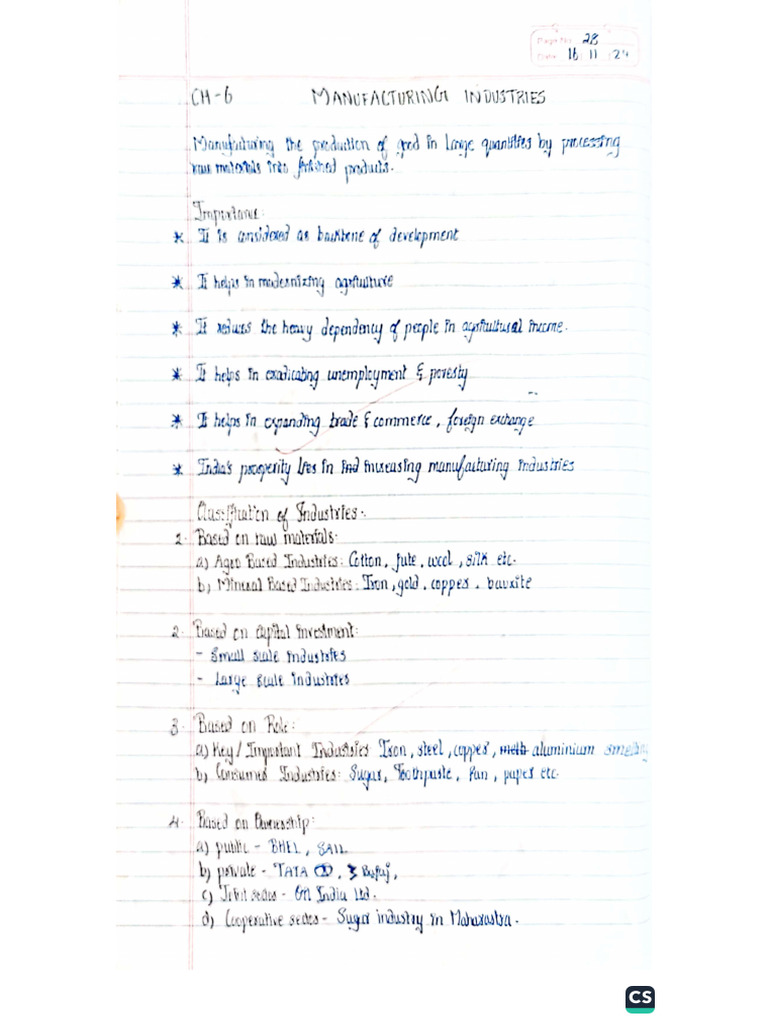 Page No. 28
Date 16 11 24
CH-6 MANUFACTURING INDUSTRIES
Manufacturing the production of good in Large quantities by processing
raw materials into finished products.
Importance
* It is considered as backbone of development
* It helps in modernizing agriculture
* It reduces the heavy dependency of people in agricultural income.
* It helps in eradicating unemployment & poverty
* It helps in expanding trade & commerce, foreign exchange
* India's prosperity lies in increasing manufacturing industries
Classification of Industries:
1. Based on raw materials:
a) Agro Based Industries: Cotton, Jute, wool, silk etc.
b) Mineral Based Industries: Iron, gold, copper, bauxite
2. Based on capital investment:
- Small scale industries
- Large scale industries
3. Based on Role:
a) Key/Important Industries Iron, steel, copper, aluminium smelting
b) Consumer Industries: Sugar, Toothpaste, Fan, paper etc.
4. Based on Ownership:
a) public - BHEL, SAIL
b) private - TATA, Bajaj,
c) Joint sector - Oil India Ltd.
d) Cooperative sector - Sugar industry in Maharastra.
CS